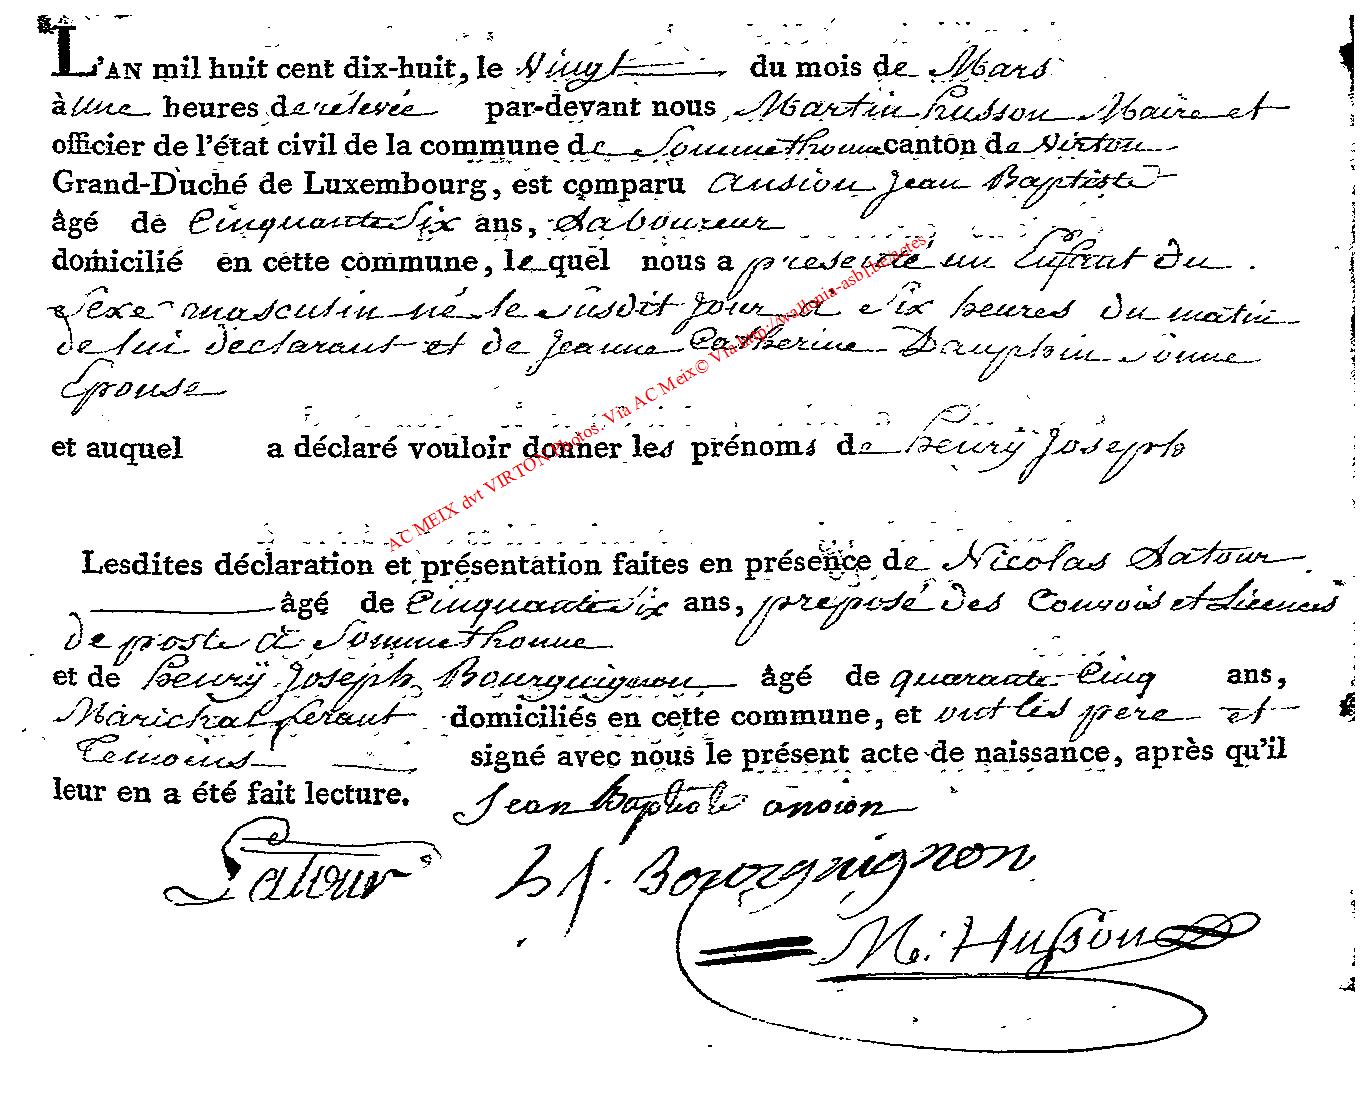 L'AN mil huit cent dix-huit, le Vingt du mois de Mars
à une heures de relevée par-devant nous Martin husson Maire et
officier de l'état civil de la commune de Sommethonne canton de Virton
Grand-Duché de Luxembourg, est comparu ansion Jean Baptiste
âgé de Cinquante Six ans, Laboureur
domicilié en cette commune, lequel nous a presenté un Enfant du
Sexe masculin né le susdit Jour a Six heures du matin
de lui declarant et de Jeanne Catherine Dauphin sonne
Epouse
et auquel a déclaré vouloir donner les prénoms de henrÿ Joseph
Lesdites déclaration et présentation faites en présence de Nicolas Latour
âgé de Cinquante Six ans, preposé des Convois et Licences
de poste à Sommethonne
et de henrÿ Joseph Bourguignon âgé de quarante Cinq ans,
Marichal ferant domiciliés en cette commune, et ont les pere et
Temoins signé avec nous le présent acte de naissance, après qu'il
leur en a été fait lecture. Jean Baptiste ansion
Latour h J. Bourguignon
M: Husson
AC MEIX dvt VIRTON Photos. Via AC Meix© Via http://wallonia-asbl.be/actes